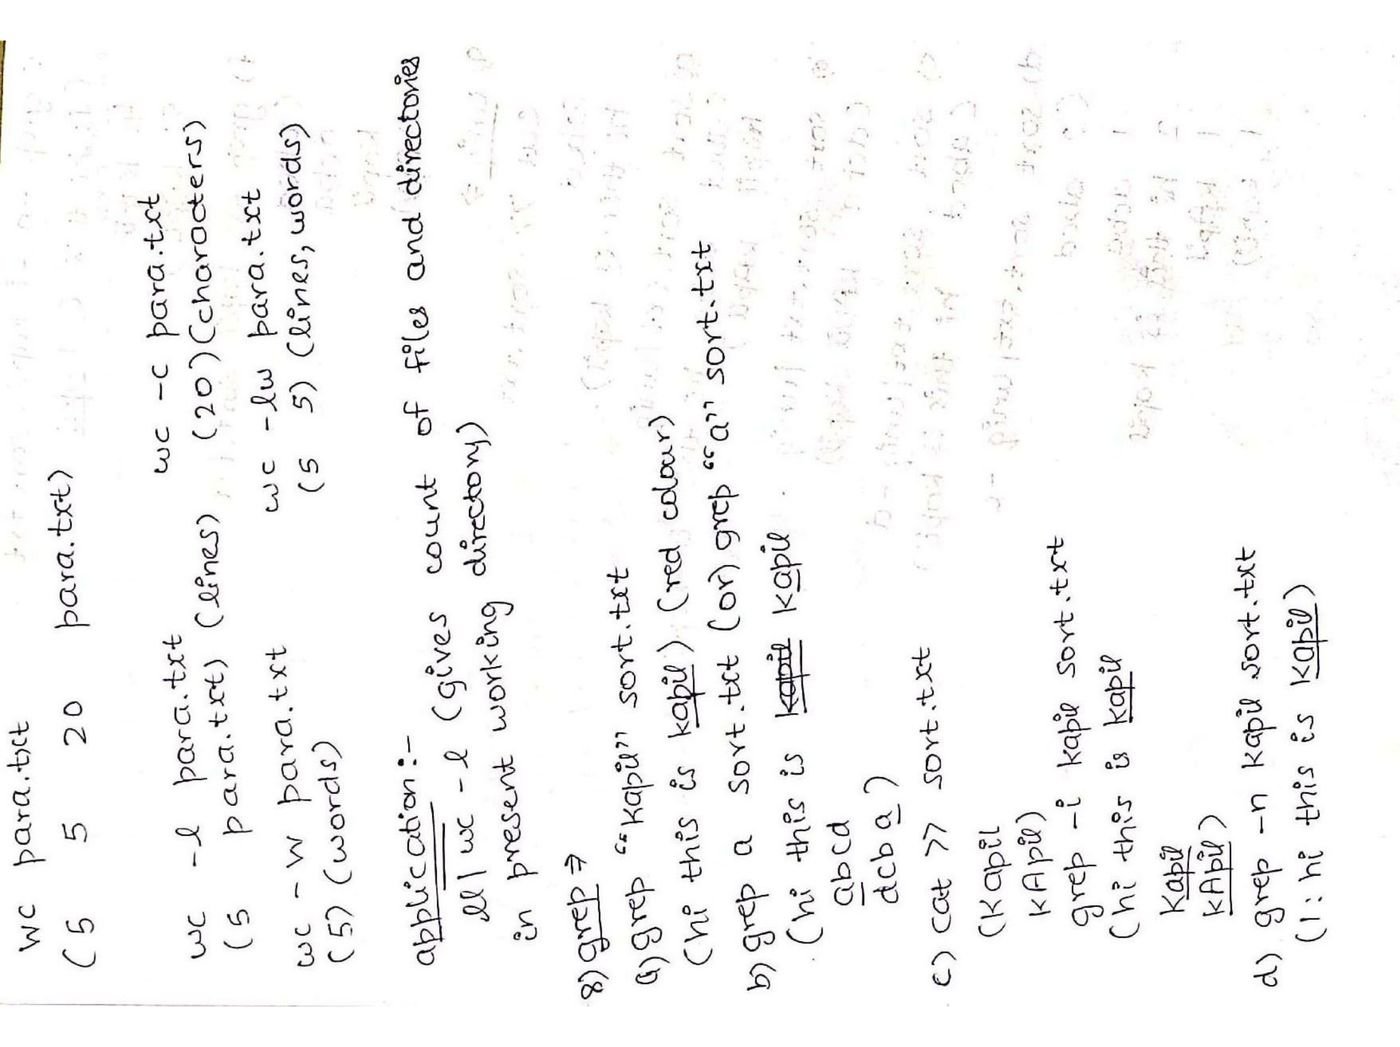 wc para.txt
(5 5 20 para.txt)
wc -l para.txt
(5 para.txt) (lines)
wc -c para.txt
(20) (characters)
wc -w para.txt
(5) (words)
wc -lw para.txt
(5 5) (lines, words)
application:-
ll | wc -l (gives count of files and directories
in present working directory)
8) grep ⇒
a) grep "kapil" sort.txt
(hi this is kapil) (red colour)
b) grep a sort.txt (or) grep "a" sort.txt
(hi this is kapil kapil
abcd
dcba)
c) cat >> sort.txt
(Kapil
kApil)
grep -i kapil sort.txt
(hi this is kapil
Kapil
kApil)
d) grep -n kapil sort.txt
(1: hi this is kapil)